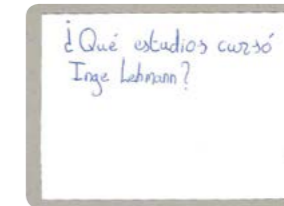 ¿Qué estudios cursó
Inge Lehmann?